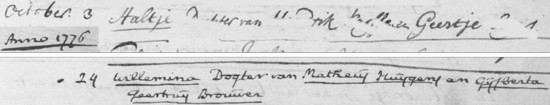 October 3 Haltje van Geertje 1
Anno 1776
24 Willemina Dogter van Matheus Huygens en Gysberta
Geertruy Brouwer